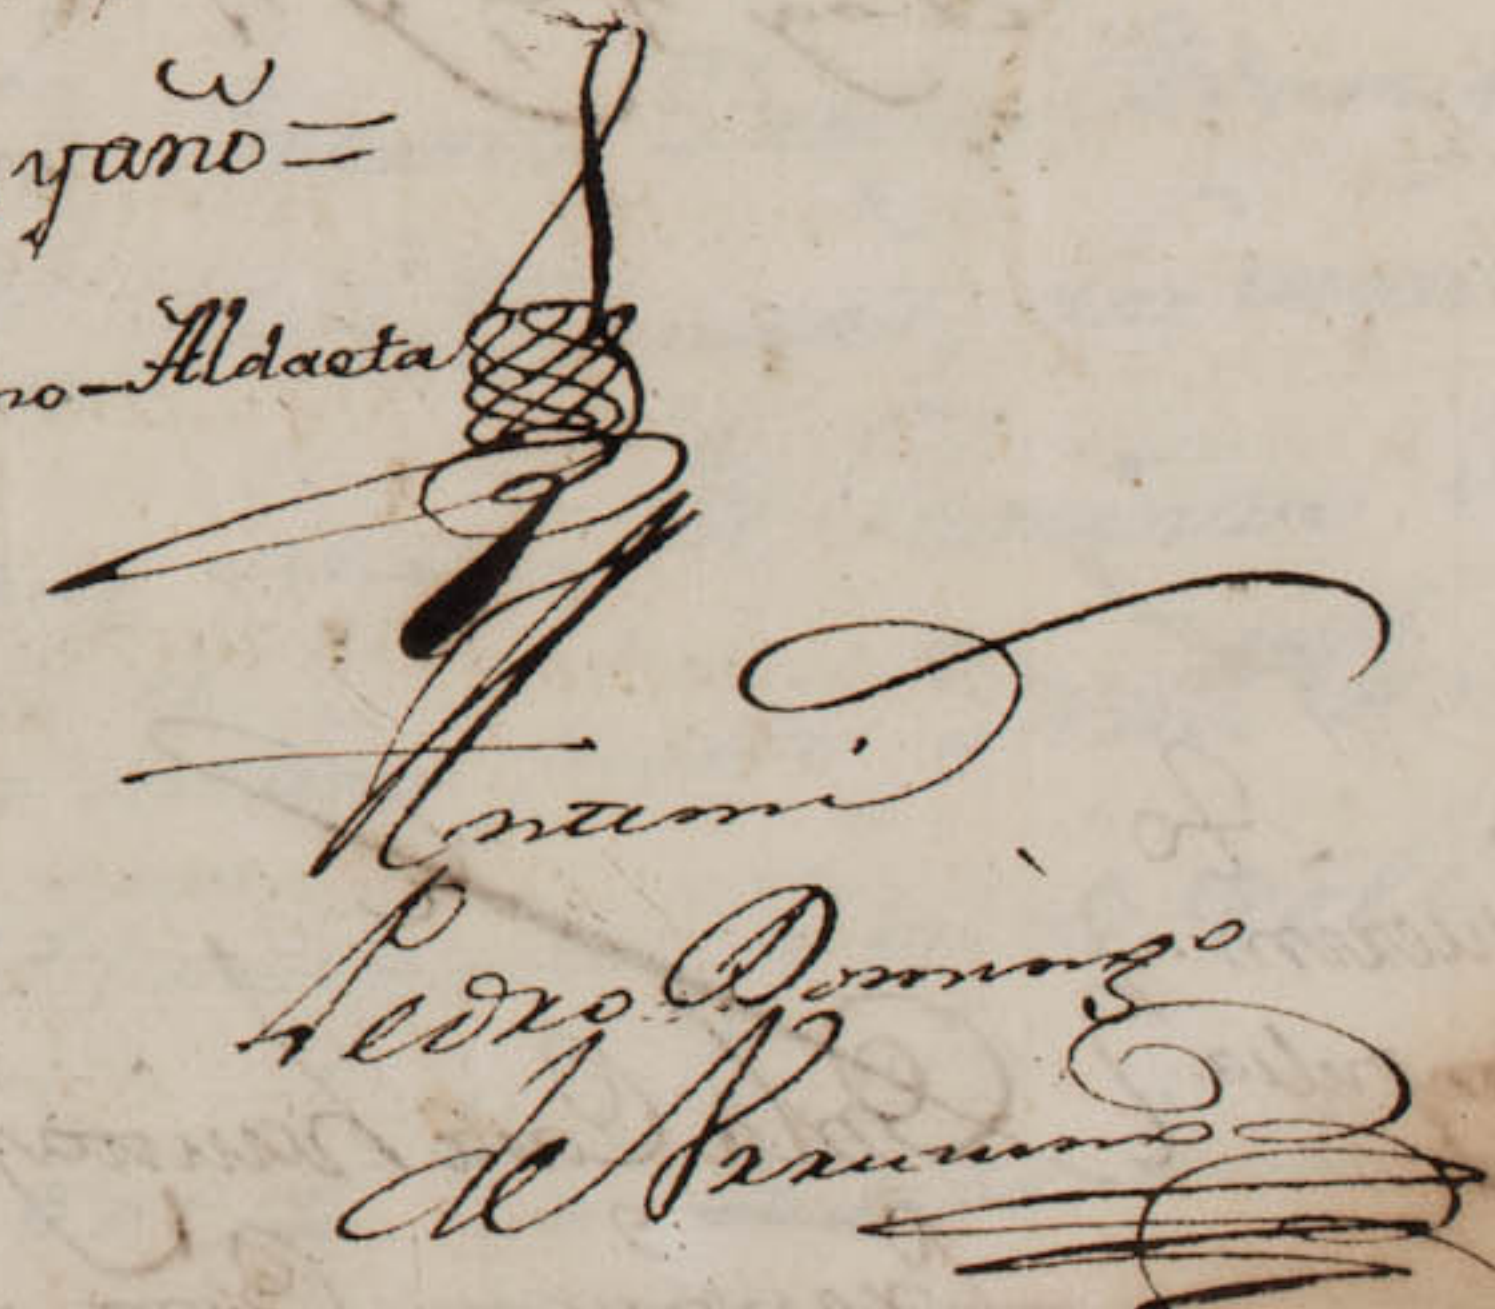 y año =
no - Aldaeta
Ante mi
Pedro Domingo
de